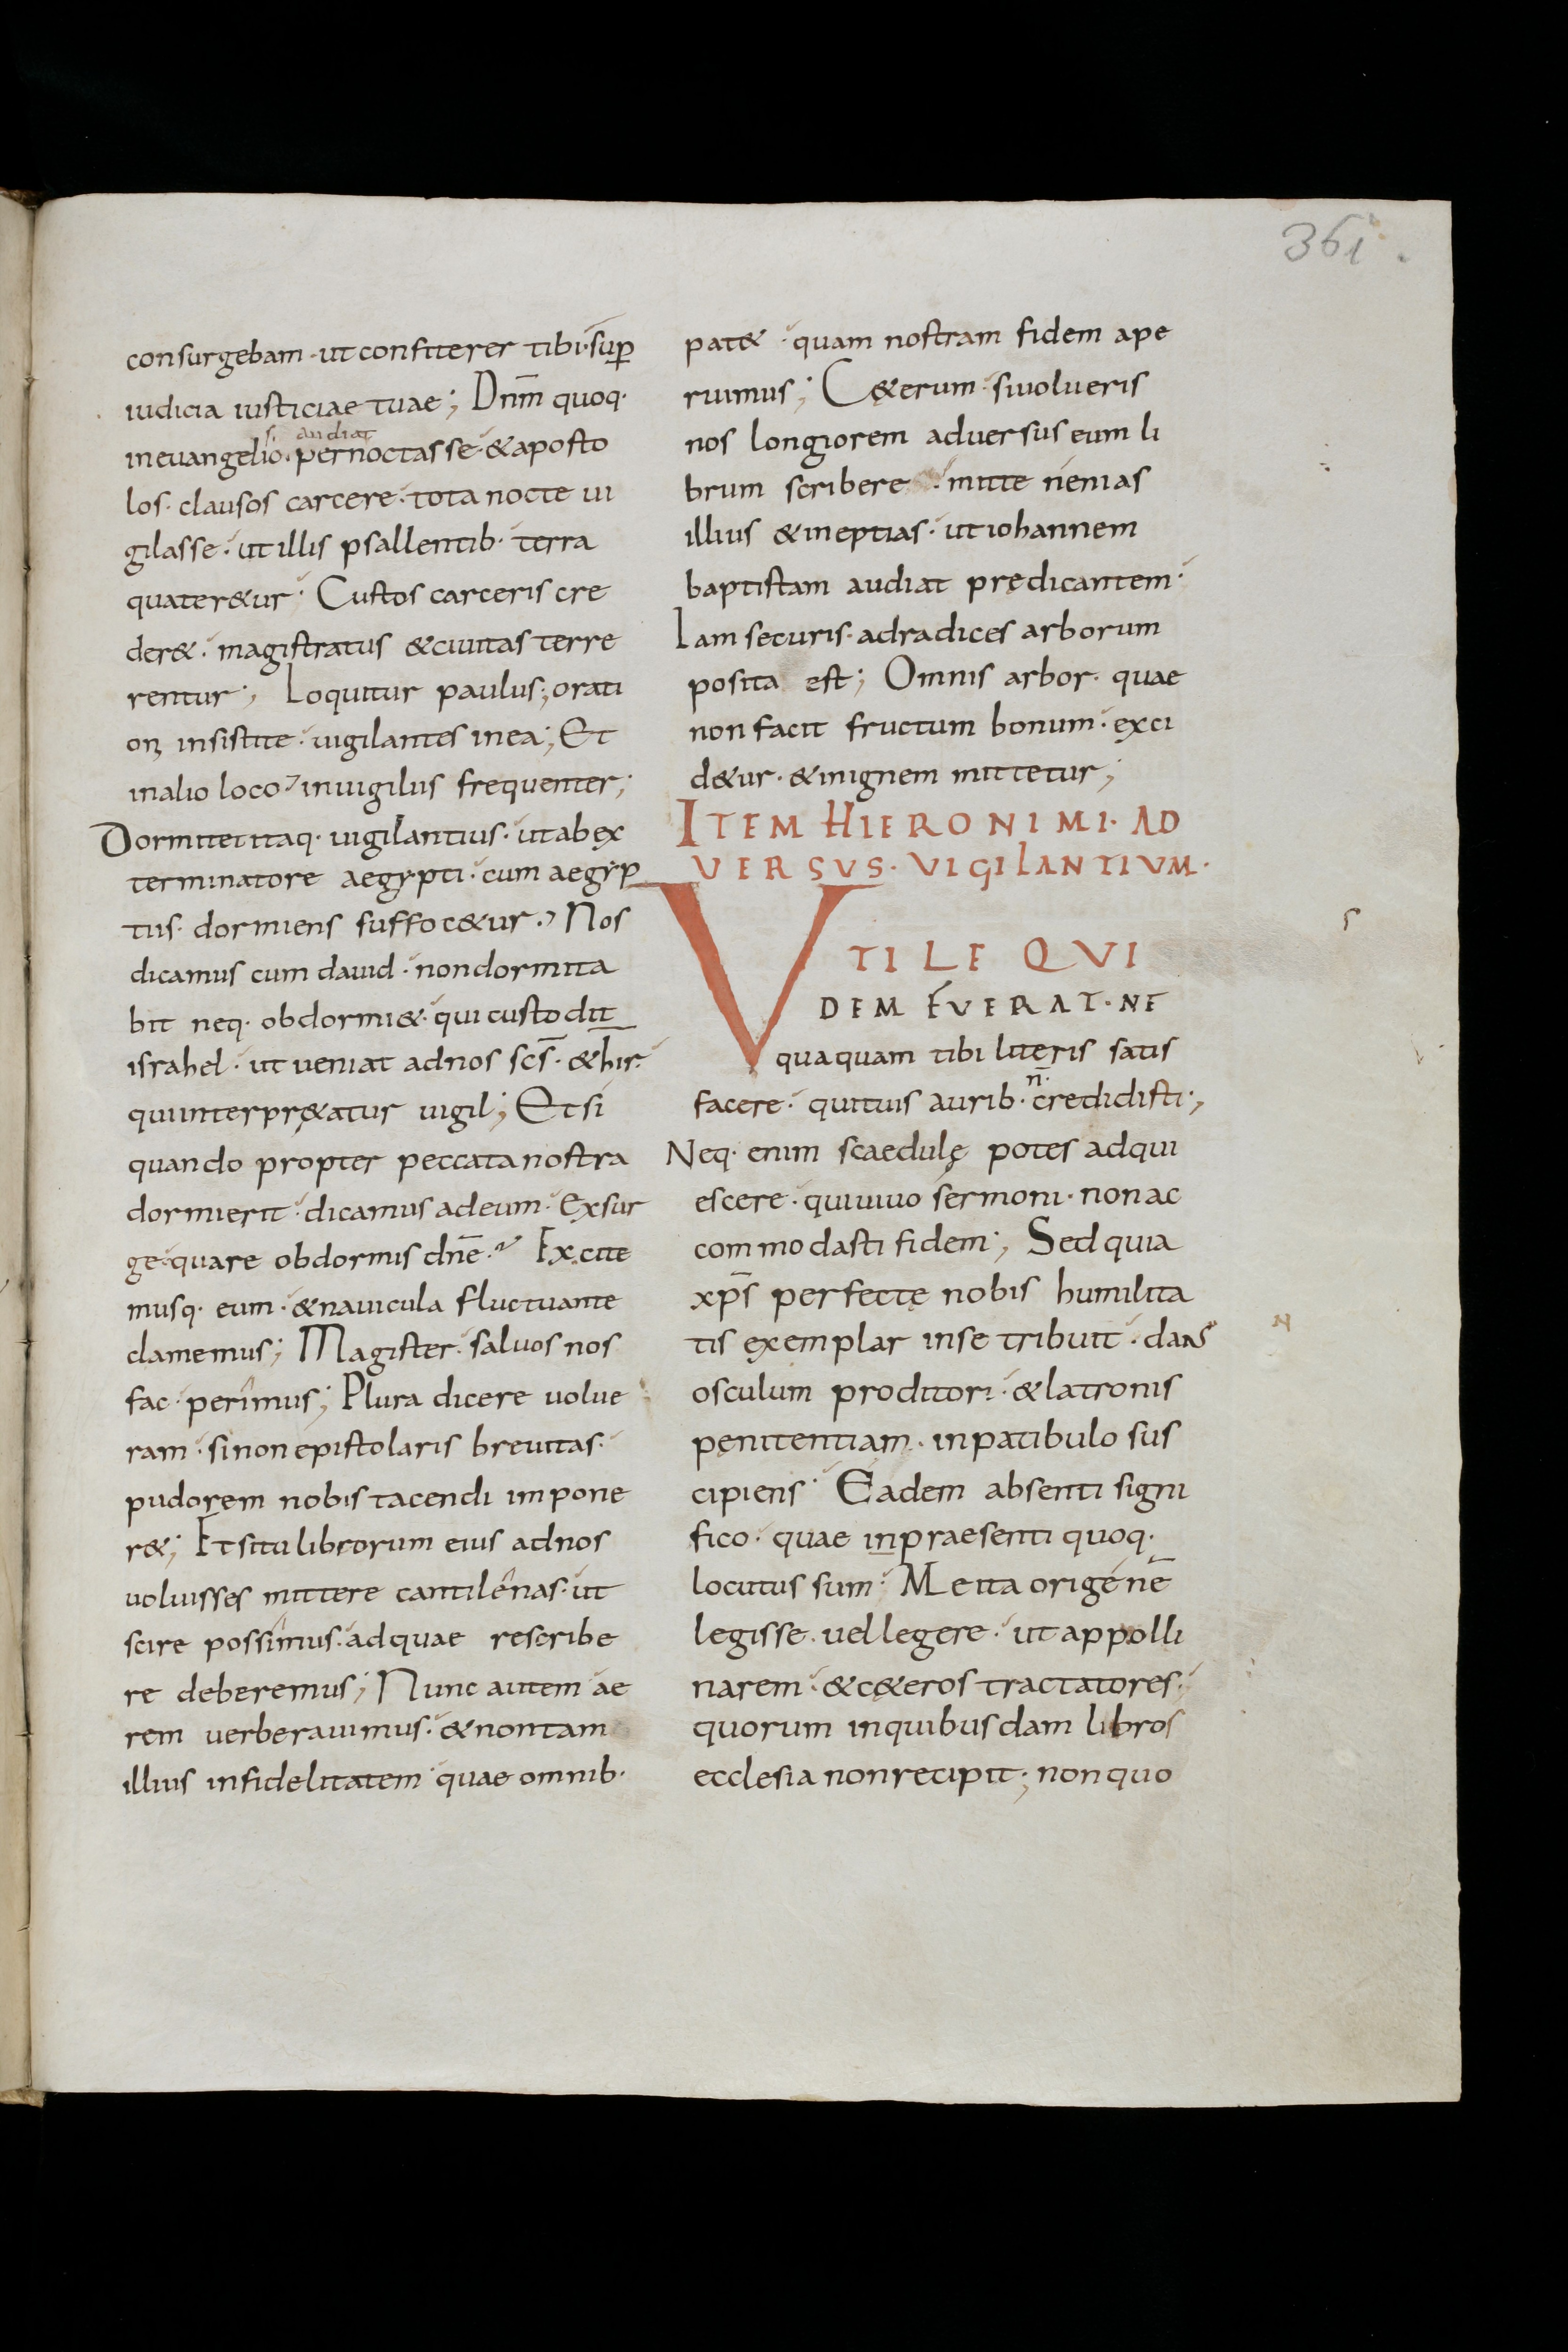 361.
consurgebam · ut confiterer tibi · sup̄
iudicia iusticiae tuae; Dnm̄ quoq·
si audiat
in euangelio · pernoctasse · & aposto
los · clausos carcere · tota nocte ui
gilasse · ut illis psallentib· terra
quater&ur · Custos carceris cre
der& · magistratus & ciuitas terre
rentur; Loquitur paulus; orati
oni insistite · uigilantes in ea; Et
in alio loco, in uigiliis frequenter;
Dormitet itaq· uigilantius · ut ab ex
terminatore aegypti · cum aegyp
tiis · dormiens suffoc&ur · Nos
dicamus cum dauid · non dormita
bit neq· obdormi& · qui custodit
israhel · ut ueniat ad nos scs̄ · & hir·
qui interpr&atur uigil; Et si
quando propter peccata nostra
dormierit · dicamus ad eum · Exsur
ge · quare obdormis dnē · Excite
musq· eum · & nauicula fluctuante
clamemus; Magister · saluos nos
fac · perimus; Plura dicere uolue
ram · si non epistolaris breuitas ·
pudorem nobis tacendi impone
r&; Et si tu librorum eius ad nos
uoluisses mittere cantilênas · ut
scire possimus · ad quae rescribe
re deberemus; Nunc autem ae
rem uerberauimus · & non tam
illius infidelitatem · quae omnib·
pat& · quam nostram fidem ape
ruimus; C&erum · si uolueris
nos longiorem aduersus eum li
brum scribere · mitte nenias
illius & ineptias · ut iohannem
baptistam audiat predicantem ·
Iam securis · ad radices arborum
posita est; Omnis arbor · quae
non facit fructum bonum · exci
d&ur · & in ignem mittetur;
ITEM HIERONIMI · AD
VERSUS · VIGILANTIVM ·
VTILE QVI
DEM FVERAT · NE
quaquam tibi litteris satis
n̄·
facere · qui tuis aurib· credidisti;
Neq· enim scaedulę potes adqui
escere · qui uiuo sermoni · non ac
commodasti fidem; Sed quia
xps̄ perfectę nobis humilita
tis exemplar in se tribuit · dans
osculum proditori · & latronis
penitentiam · in patibulo sus
cipiens · Eadem absenti signi
fico · quae in praesenti quoq·
locutus sum · Me ita origenē
legisse · uel legere · ut appolli
narem · & c&eros tractatores;
quorum in quibusdam libros
ecclesia non recipit; non quo